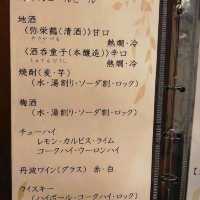 地酒
〈弥栄鶴(清酒)〉甘口
熱燗・冷
〈酒呑童子(本醸造)〉辛口
しゅてんどうじ
熱燗・冷
焼酎(麦・芋)
(水・湯割り・ソーダ割・ロック)
梅酒
(水・湯割り・ソーダ割・ロック)
チューハイ
レモン・カルピス・ライム
コークハイ・ウーロンハイ
丹波ワイン(グラス) 赤・白
ウイスキー
(ハイボール・コークハイ・ロック)